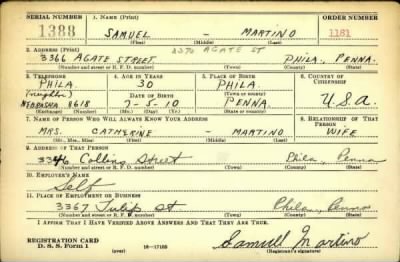 SERIAL NUMBER 1. NAME (Print) ORDER NUMBER
1388 SAMUEL - MARTINO 1181
(First) (Middle) (Last)
2. ADDRESS (Print) 3370 AGATE ST
3366 AGATE STREET PHILA, PENNA.
(Number and street or R. F. D. number) (Town) (County) (State)
3. TELEPHONE 4. AGE IN YEARS 5. PLACE OF BIRTH 6. COUNTRY OF CITIZENSHIP
PHILA 30 PHILA.
(neighbor) DATE OF BIRTH (Town or county)
NEBRASKA 8618 7-5-10 PENNA. U.S.A
(Exchange) (Number) (Mo.) (Day) (Yr.) (State or country)
7. NAME OF PERSON WHO WILL ALWAYS KNOW YOUR ADDRESS 8. RELATIONSHIP OF THAT PERSON
MRS. CATHERINE - MARTINO WIFE
(Mr., Mrs., Miss) (First) (Middle) (Last)
9. ADDRESS OF THAT PERSON
3346 Collins Street Phila, Penna
(Number and street or R. F. D. number) (Town) (County) (State)
10. EMPLOYER'S NAME
Self
11. PLACE OF EMPLOYMENT OR BUSINESS
3367 Tulip St Phila, Penna
(Number and street or R. F. D. number) (Town) (County) (State)
I AFFIRM THAT I HAVE VERIFIED ABOVE ANSWERS AND THAT THEY ARE TRUE.
REGISTRATION CARD
D. S. S. Form 1 (over) 16-17105 Samuel Martino
(Registrant's signature)